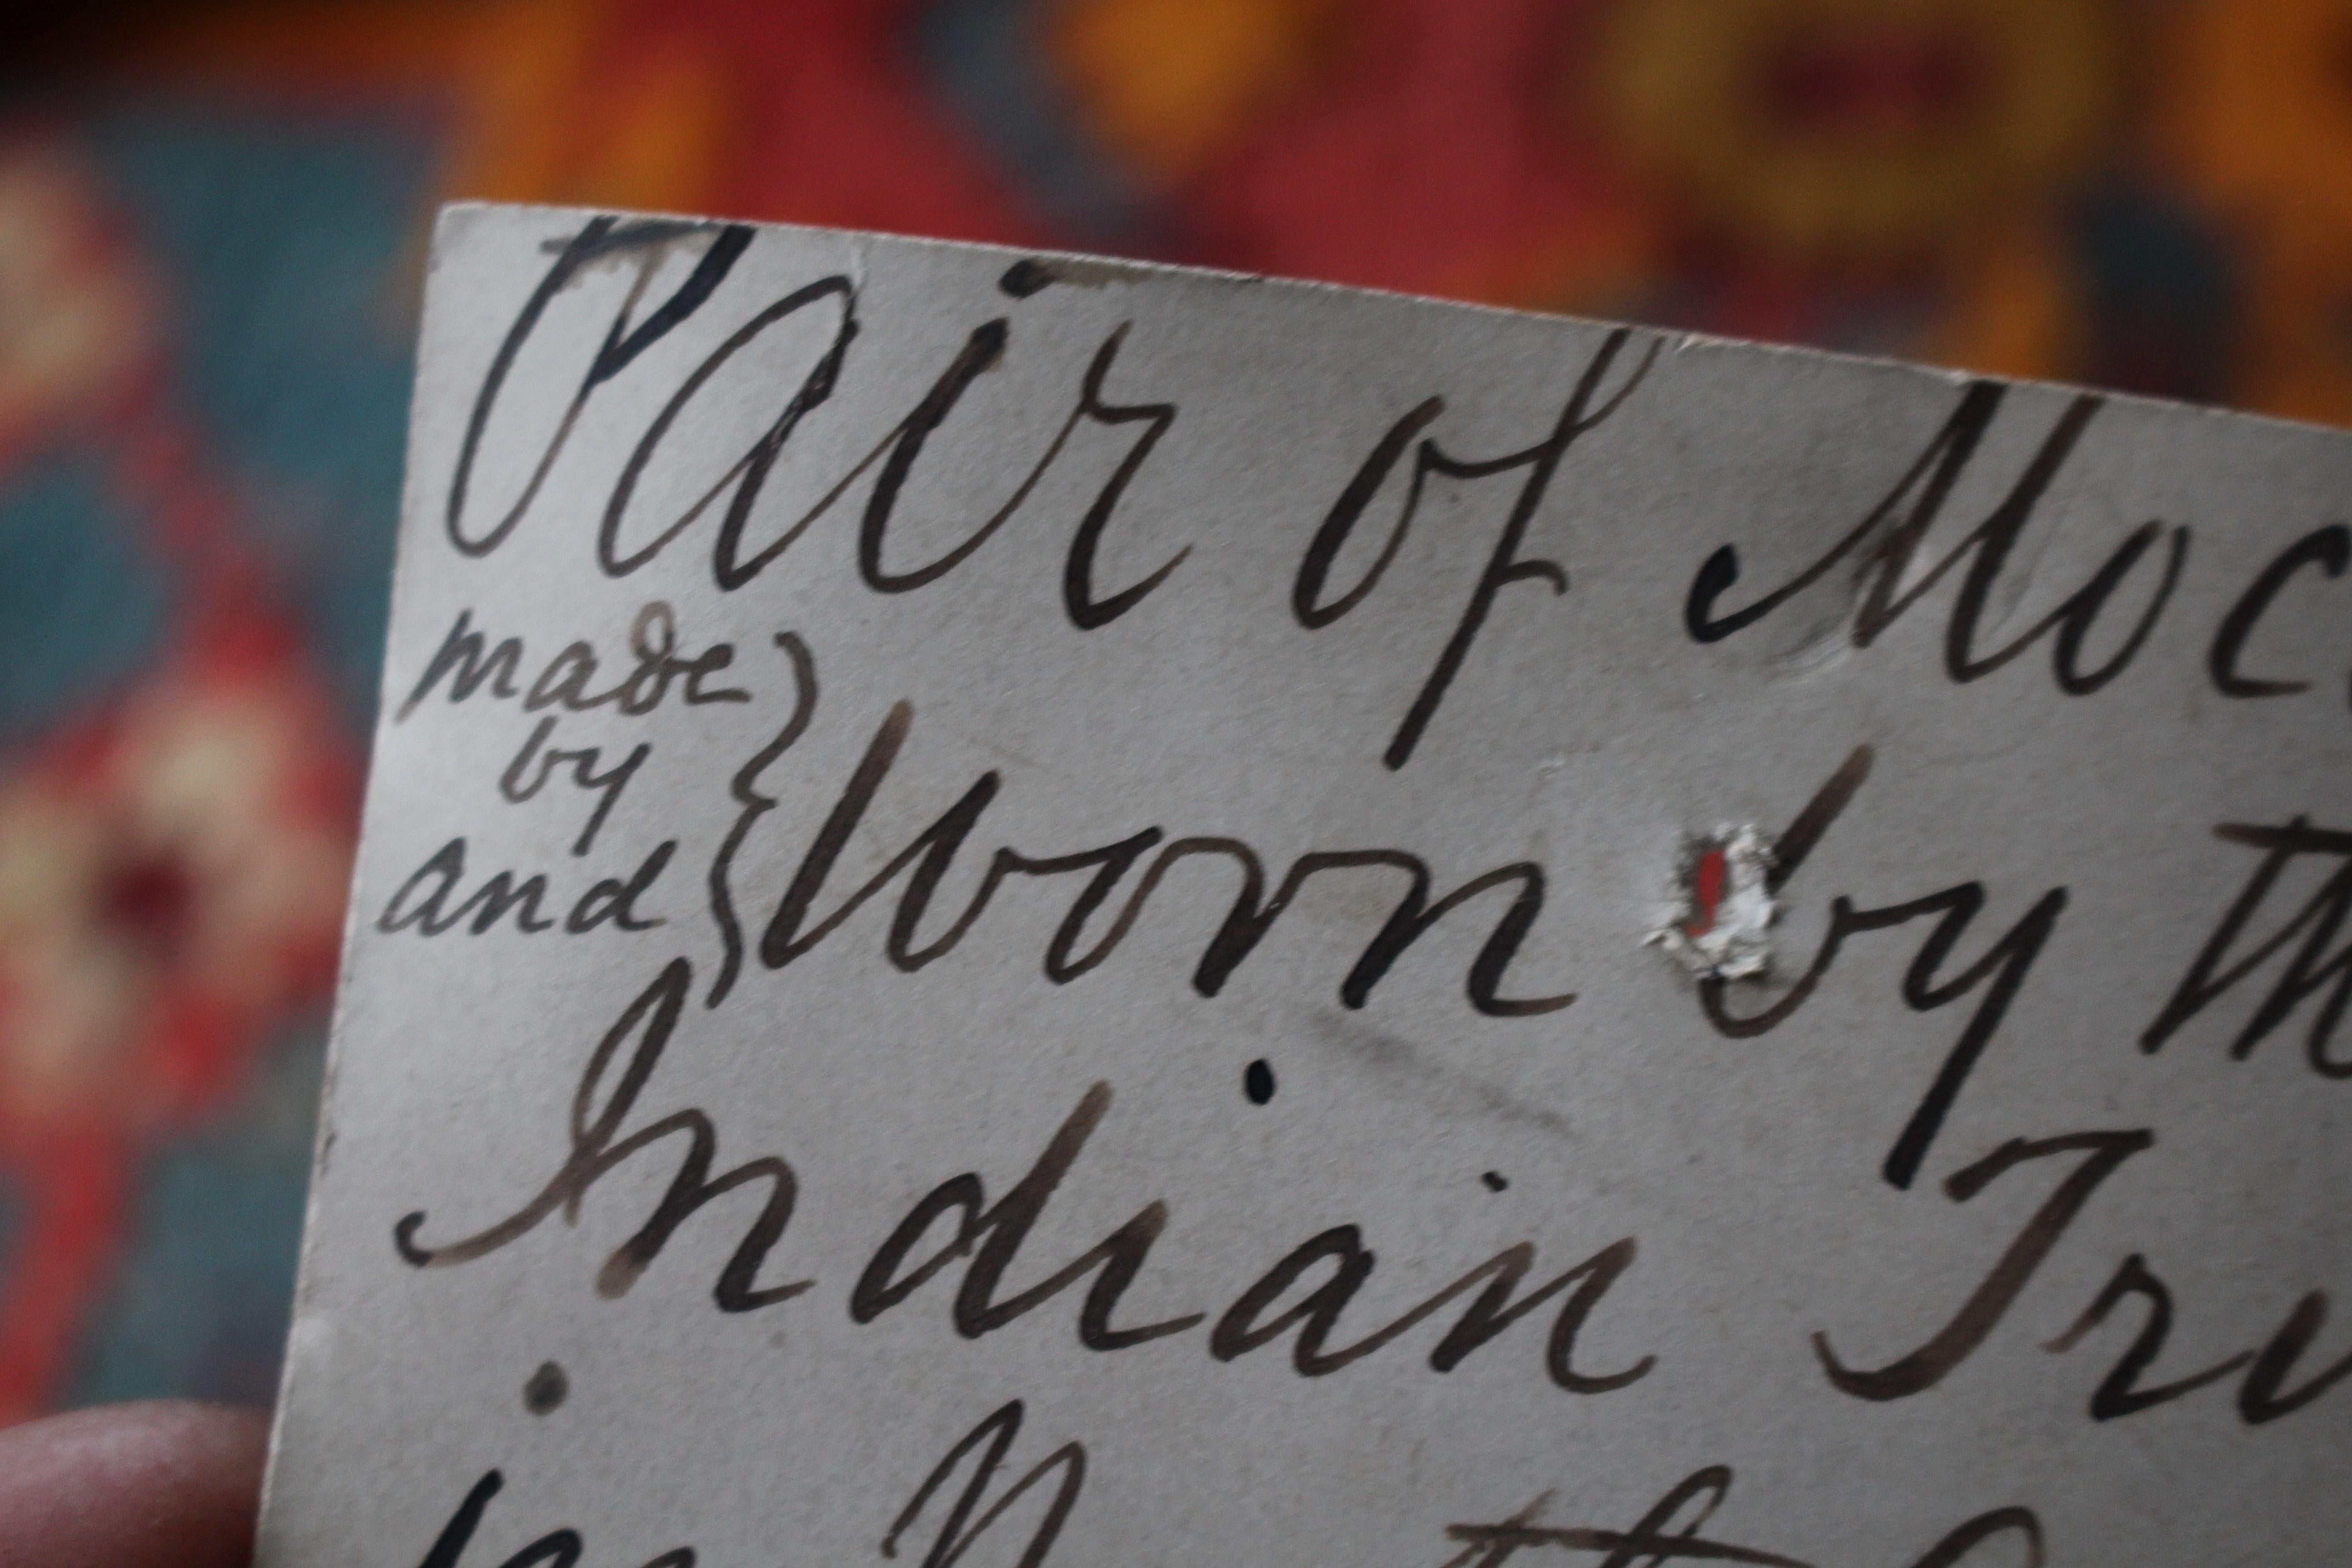 Pair of Moc
made
by
and } Worn by th
Indian Tri
in North